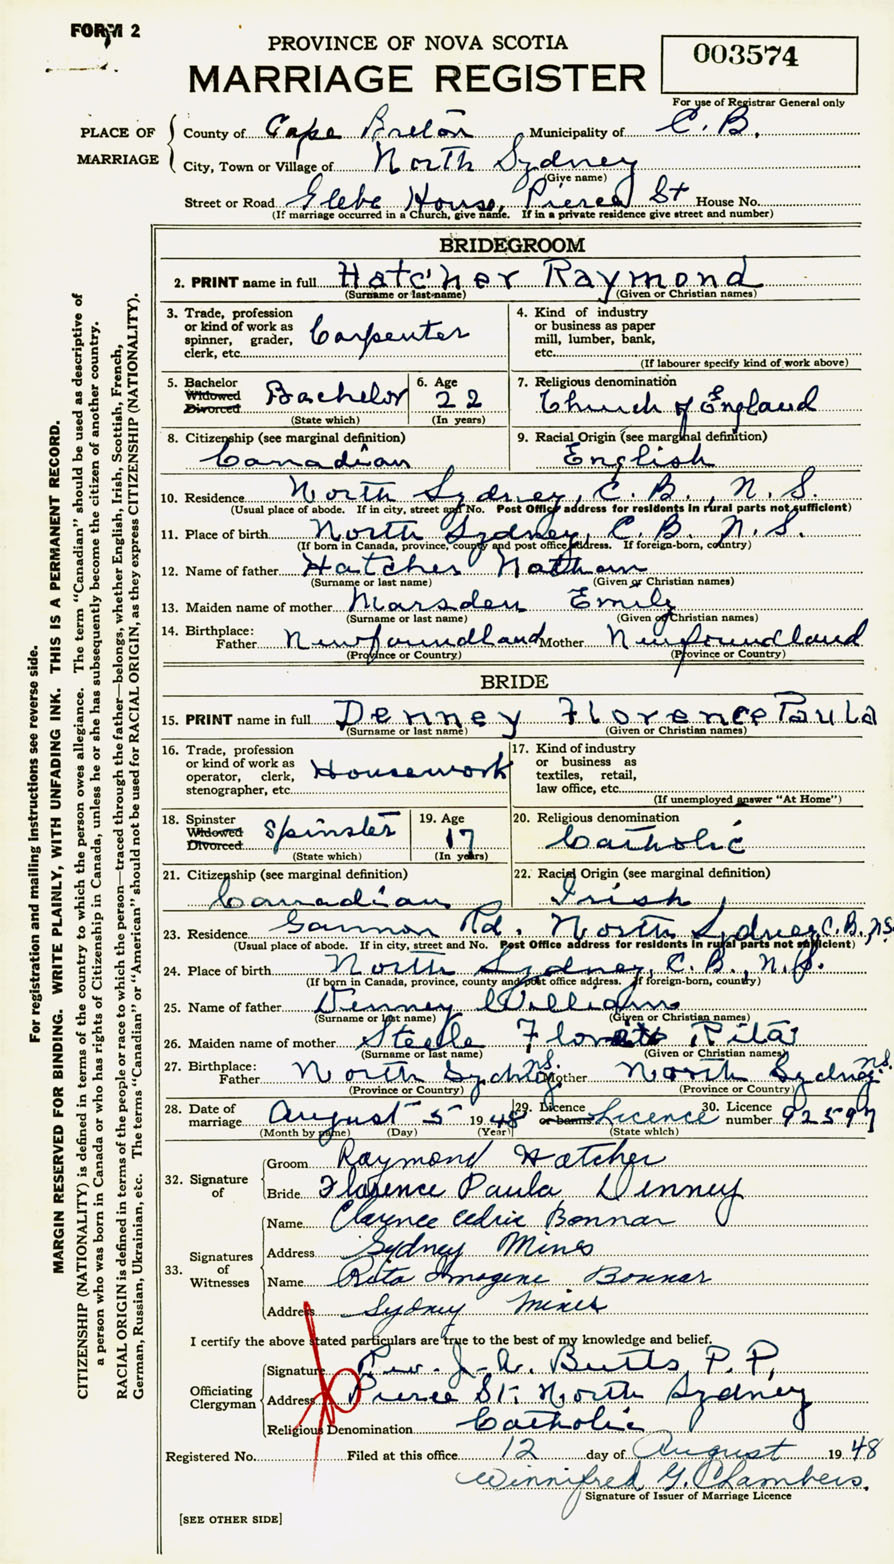 FORM 2
PROVINCE OF NOVA SCOTIA
MARRIAGE REGISTER
003574
For use of Registrar General only
PLACE OF MARRIAGE
County of Cape Breton Municipality of C. B.
City, Town or Village of North Sydney
(Give name)
Street or Road Glebe House, Pierce St House No.
(If marriage occurred in a Church, give name. If in a private residence give street and number)
BRIDEGROOM
2. PRINT name in full Hatcher Raymond
(Surname or last name) (Given or Christian names)
3. Trade, profession or kind of work as spinner, grader, clerk, etc. Carpenter
4. Kind of industry or business as paper mill, lumber, bank, etc.
(If labourer specify kind of work above)
5. Bachelor Widowed Divorced Bachelor
(State which)
6. Age 22
(In years)
7. Religious denomination Church of England
8. Citizenship (see marginal definition) Canadian
9. Racial Origin (see marginal definition) English
10. Residence North Sydney, C. B., N. S.
(Usual place of abode. If in city, street and No. Post Office address for residents in rural parts not sufficient)
11. Place of birth North Sydney, C. B. N. S.
(If born in Canada, province, county and post office address. If foreign-born, country)
12. Name of father Hatcher Nathan
(Surname or last name) (Given or Christian names)
13. Maiden name of mother Marsden Emily
(Surname or last name) (Given or Christian names)
14. Birthplace: Father Newfoundland Mother Newfoundland
(Province or Country) (Province or Country)
BRIDE
15. PRINT name in full Denney Florence Paula
(Surname or last name) (Given or Christian names)
16. Trade, profession or kind of work as operator, clerk, stenographer, etc. Housework
17. Kind of industry or business as textiles, retail, law office, etc.
(If unemployed answer "At Home")
18. Spinster Widowed Divorced Spinster
(State which)
19. Age 17
(In years)
20. Religious denomination Catholic
21. Citizenship (see marginal definition) Canadian
22. Racial Origin (see marginal definition) Irish
23. Residence Gannon Rd. North Sydney C. B. N.S.
(Usual place of abode. If in city, street and No. Post Office address for residents in rural parts not sufficient)
24. Place of birth North Sydney, C. B., N. S.
(If born in Canada, province, county and post office address. If foreign-born, country)
25. Name of father Denney William
(Surname or last name) (Given or Christian names)
26. Maiden name of mother Steele Rita
(Surname or last name) (Given or Christian names)
27. Birthplace: Father North Sydney N.S. Mother North Sydney N.S.
(Province or Country) (Province or Country)
28. Date of marriage August 5 1948
(Month by name) (Day) (Year)
29. Licence or banns Licence
(State which)
30. Licence number 92597
32. Signature of
Groom Raymond Hatcher
Bride Florence Paula Denney
33. Signatures of Witnesses
Name Clarence Cedric Bonnar
Address Sydney Mines
Name Rita Imogene Bonnar
Address Sydney Mines
I certify the above stated particulars are true to the best of my knowledge and belief.
Officiating Clergyman
Signature Rev. J. A. Butts P. P.
Address Pierce St. North Sydney
Religious Denomination Catholic
Registered No. Filed at this office 12 day of August 1948
Winnifred G. Chambers.
Signature of Issuer of Marriage Licence
[SEE OTHER SIDE]
For registration and mailing instructions see reverse side.
MARGIN RESERVED FOR BINDING. WRITE PLAINLY, WITH UNFADING INK. THIS IS A PERMANENT RECORD.
CITIZENSHIP (NATIONALITY) is defined in terms of the country to which the person owes allegiance. The term "Canadian" should be used as descriptive of
a person who was born in Canada or who has rights of Citizenship in Canada, unless he or she has subsequently become the citizen of another country.
RACIAL ORIGIN is defined in terms of the people or race to which the person—traced through the father—belongs, whether English, Irish, Scottish, French,
German, Russian, Ukrainian, etc. The terms "Canadian" or "American" should not be used for RACIAL ORIGIN, as they express CITIZENSHIP (NATIONALITY).